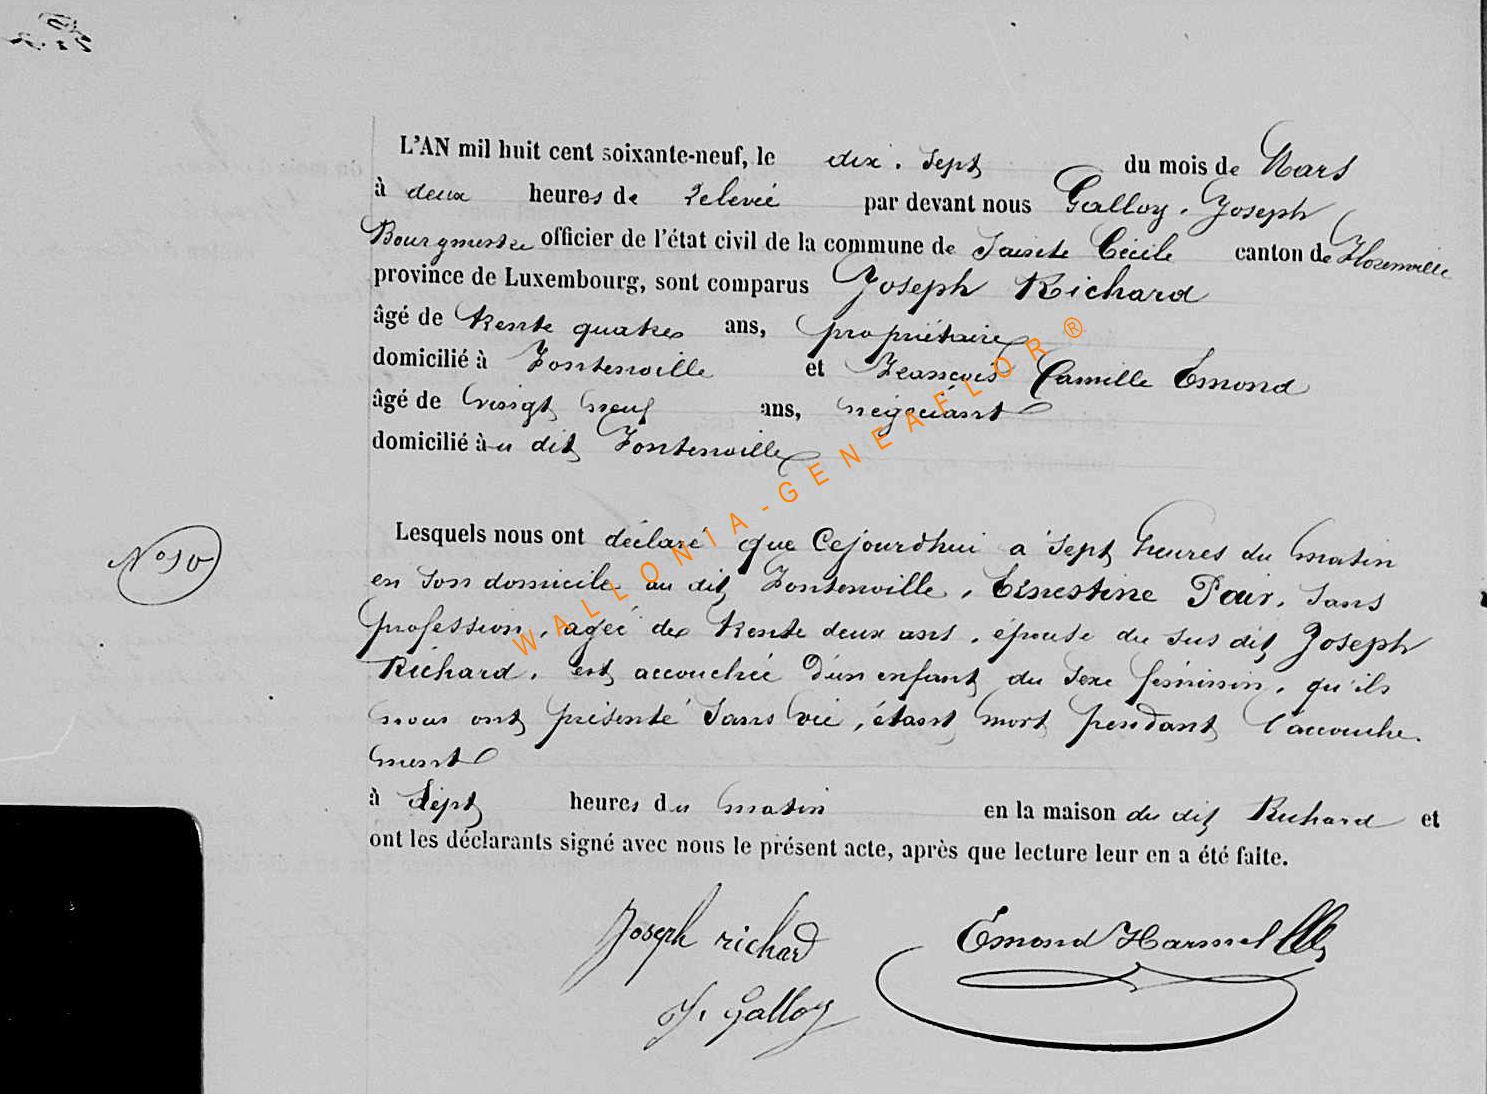 L'AN mil huit cent soixante-neuf, le dix-sept du mois de Mars
à deux heures de relevée par devant nous Galloy, Joseph
Bourgmestre officier de l'état civil de la commune de Sainte Cécile canton de Florenville
province de Luxembourg, sont comparus Joseph Richard
âgé de trente quatre ans, propriétaire
domicilié à Fontenoille et François Camille Emond
âgé de vingt neuf ans, négociant
domicilié àu dit Fontenoille
Lesquels nous ont déclaré que Cejourd'hui à sept heures du matin
N° 10
en son domicile au dit Fontenoille, Ernestine Poir, sans
profession, agée de trente deux ans, épouse du sus dit Joseph
Richard, est accouchée d'un enfant du sexe féminin, qu'ils
nous ont présenté sans vie, étant mort pendant l'accouche-
ment
à sept heures du matin en la maison du dit Richard et
ont les déclarants signé avec nous le présent acte, après que lecture leur en a été faite.
Joseph richard Emond Harmel
J. Galloy
WALLONIA-GENEAFLOR®